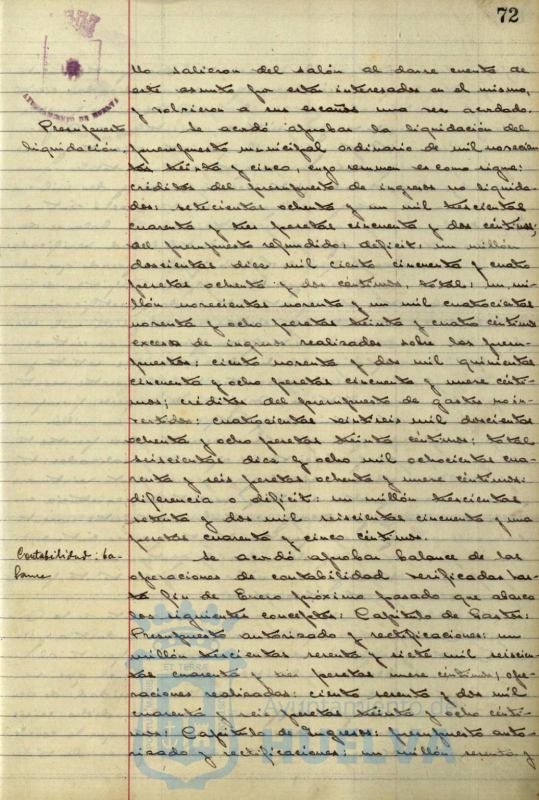 72
AYUNTAMIENTO DE HUELVA
No salieron del salón al darse cuenta de
este asunto por estar interesados en el mismo,
y volvieron a sus escaños una vez acordado.
Presupuesto
liquidación.
Se acordó aprobar la liquidación del
presupuesto municipal ordinario de mil novecien
tos treinta y cinco, cuyo resumen es como sigue:
créditos del presupuesto de ingresos no liquida-
dos: setecientas ochenta y un mil trescientas
cuarenta y tres pesetas cincuenta y dos céntimos;
del presupuesto refundido: déficit: un millón
doscientas diez mil ciento cincuenta y cuatro
pesetas ochenta y dos céntimos, total: un mi-
llón novecientas noventa y un mil cuatrocientas
noventa y ocho pesetas treinta y cuatro céntimos
exceso de ingresos realizados sobre los presu-
puestos: ciento noventa y dos mil quinientas
cincuenta y ocho pesetas cincuenta y nueve cénti-
mos; créditos del presupuesto de gastos no in-
vertidos: cuatrocientas veintiseis mil doscientas
ochenta y ocho pesetas treinta céntimos; total
seiscientas diez y ocho mil ochocientas cua-
renta y seis pesetas ochenta y nueve céntimos:
diferencia o déficit: un millón trescientas
setenta y dos mil seiscientas cincuenta y una
pesetas cuarenta y cinco céntimos.
Contabilidad: ba-
lance
Se acordó aprobar balance de las
operaciones de contabilidad verificadas has-
ta fin de Enero próximo pasado que abarca
los siguientes conceptos: Capítulo de Gastos:
Presupuesto autorizado y rectificaciones: un
millón trescientas sesenta y siete mil seiscien-
tas cuarenta y tres pesetas nueve céntimos, ope-
raciones realizadas: ciento sesenta y dos mil
cuarenta y seis pesetas treinta y ocho cénti-
mos; Capítulo de Ingresos: presupuesto auto-
rizado y rectificaciones: un millón sesenta y
Ayuntamiento de
HUELVA